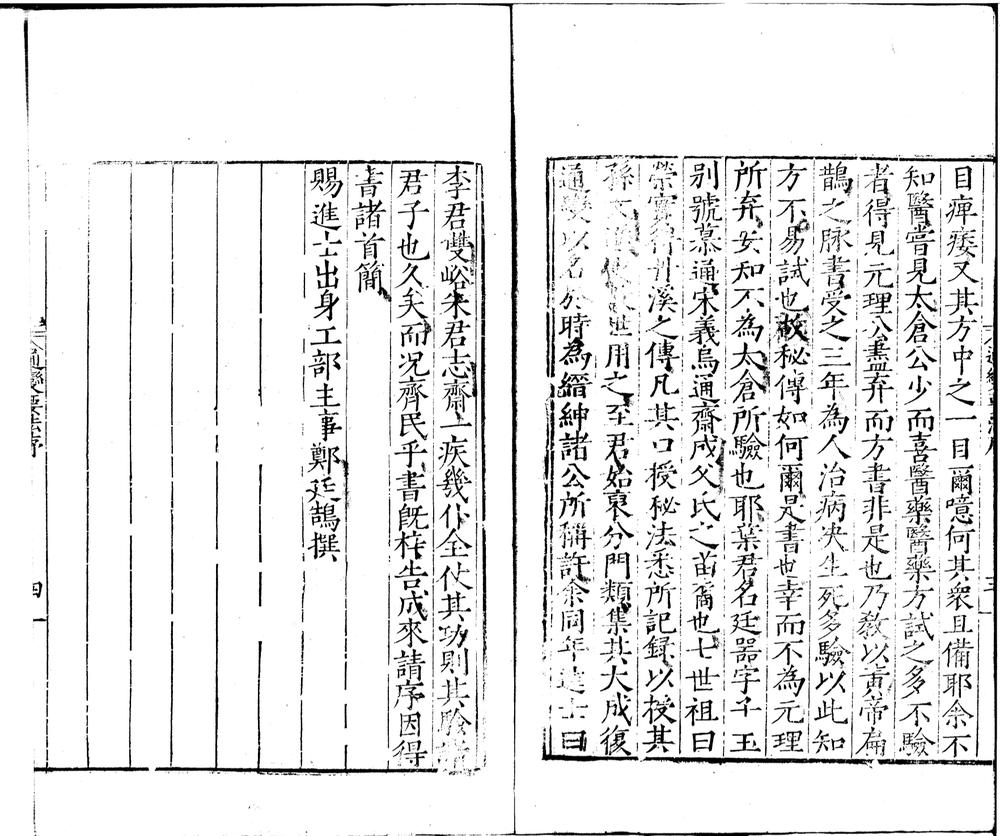 目痺痿又其方中之一目爾噫何其衆且備耶余不
知醫嘗見太倉公少而喜醫藥醫藥方試之多不驗
者得見元理公盡弃而方書非是也乃教以黃帝扁
鵲之脉書受之三年為人治病决生死多驗以此知
方不易試也故秘傳如何爾是書也幸而不為元理
所弃安知不為太倉所驗也耶葉君名廷器字子玉
别號慕通宋義烏通齋成父氏之苗裔也七世祖曰
榮實得丹溪之傳凡其口授秘法悉所記録以授其
孫世用之至君始裒分門類集其大成復
通變以名於時為縉紳諸公所稱許余同年進士曰
李君雙峪朱君志齋一疾幾仆全仗其功則其驗
君子也久矣而况齊民乎書旣梓告成來請序因得
書諸首簡
賜進士出身工部主事鄭廷鵠撰
通變要法序
四